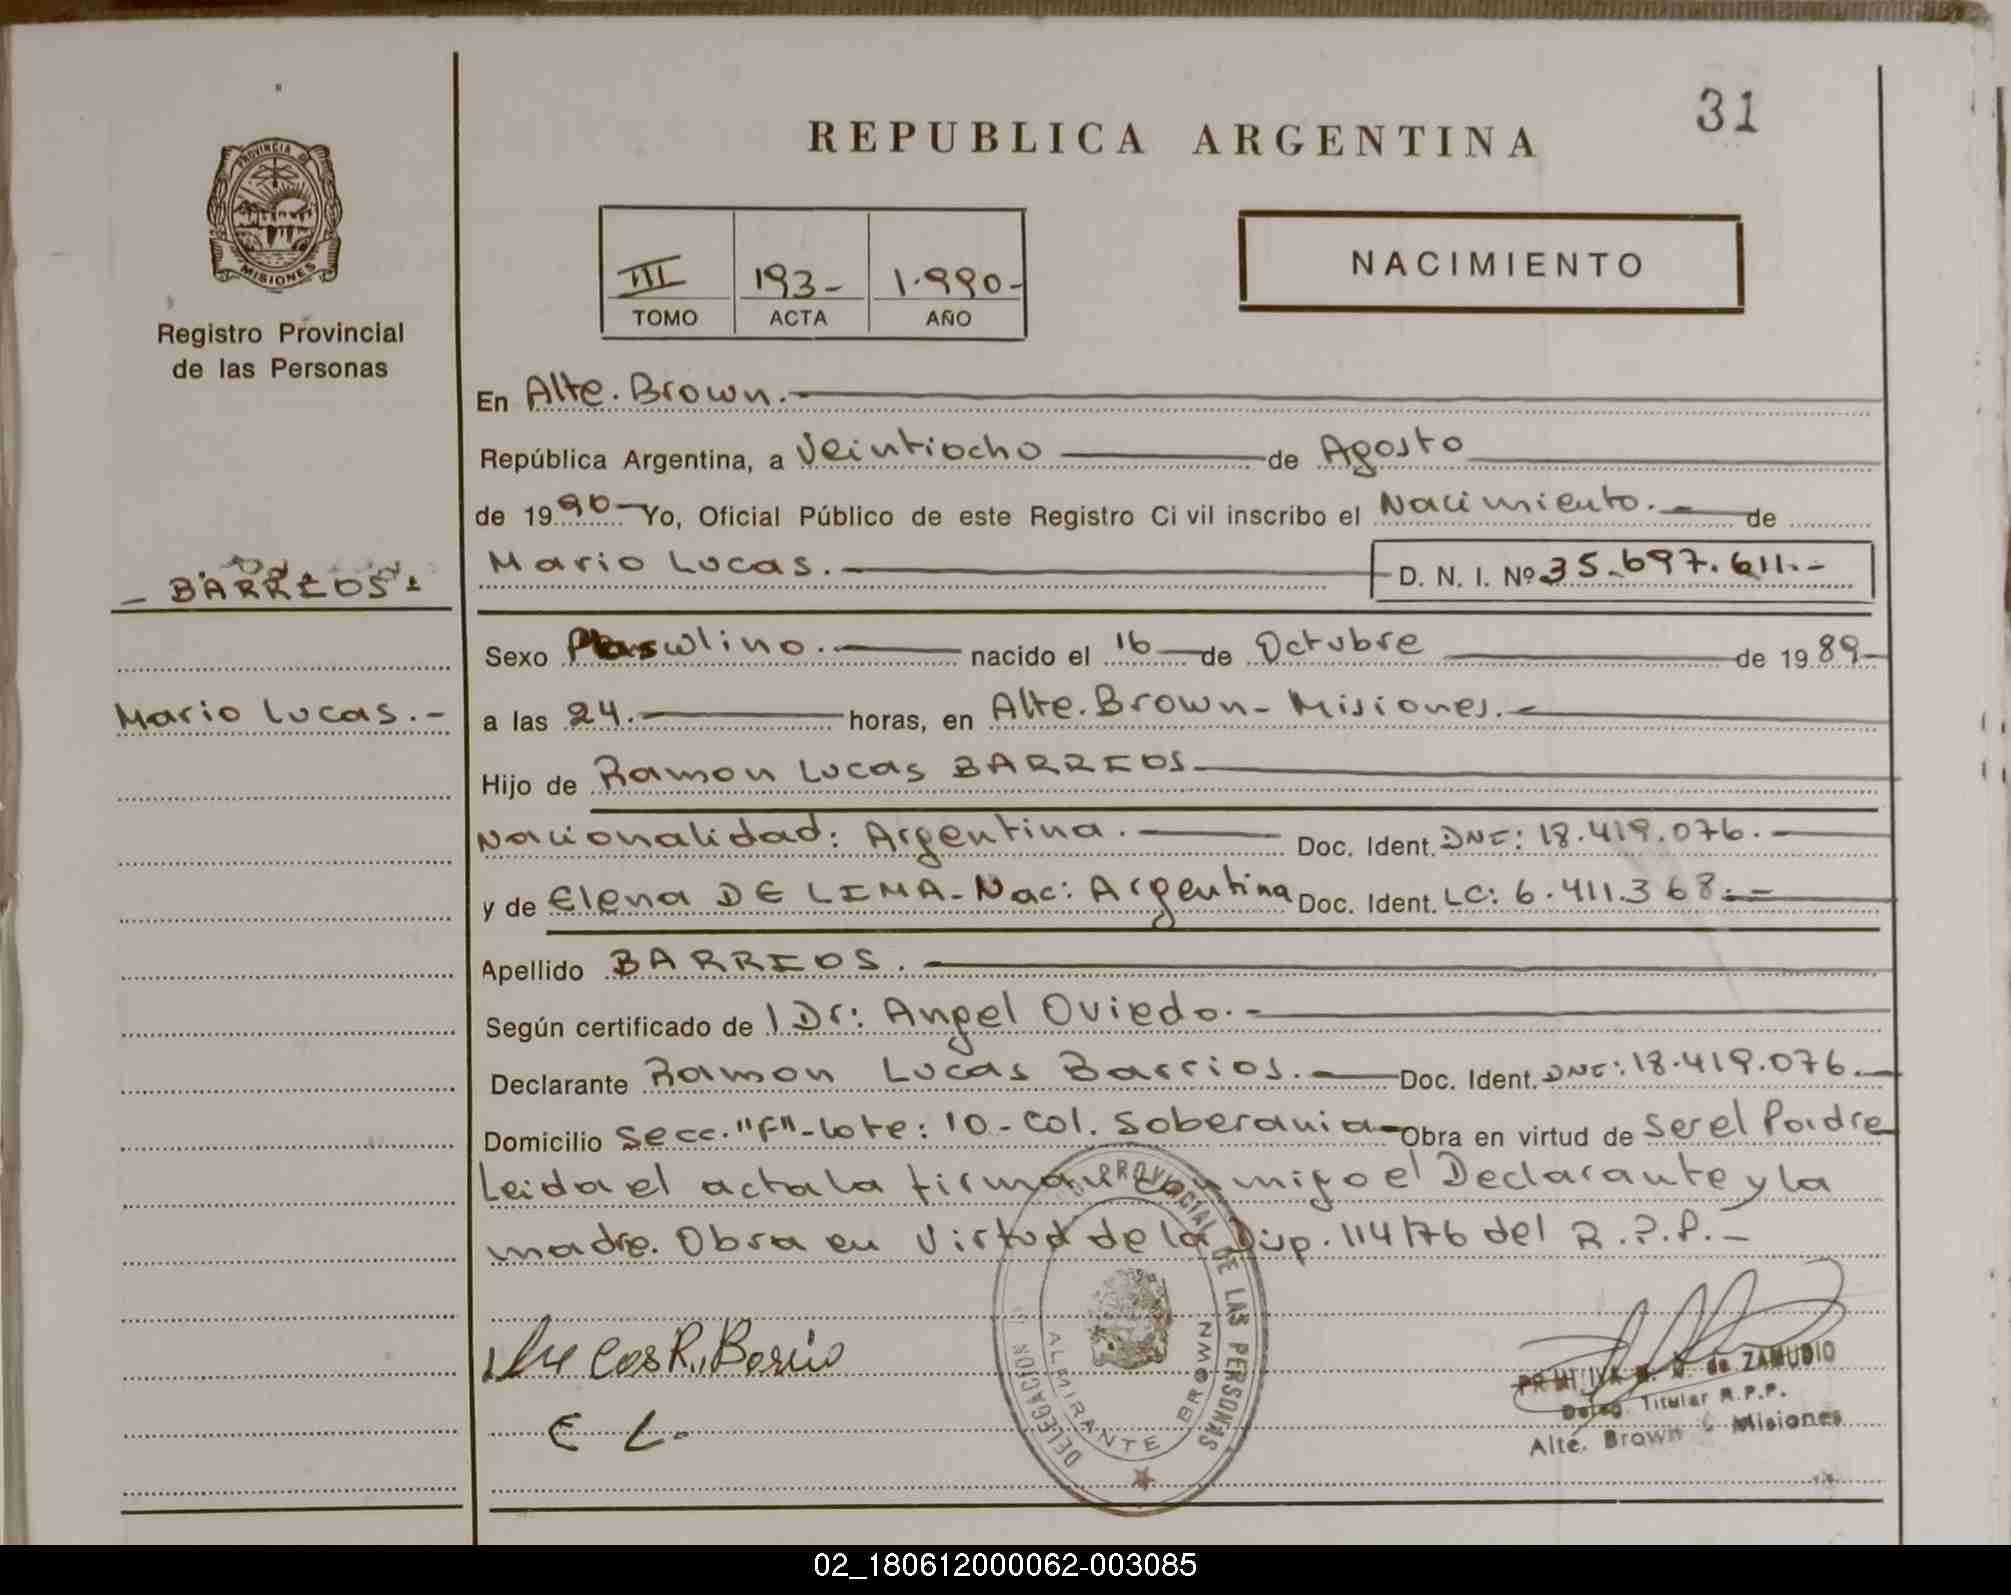 31
REPUBLICA ARGENTINA
PROVINCIA DE
MISIONES
Registro Provincial
de las Personas
III 193- 1.990-
TOMO ACTA AÑO
NACIMIENTO
En Alte. Brown.-
República Argentina, a Veintiocho de Agosto
de 1990- Yo, Oficial Público de este Registro Civil inscribo el Nacimiento.- de
Mario Lucas.- D. N. I. Nº 35.697.611.-
- BARRIOS-
Sexo Masculino.- nacido el 16 de Octubre de 1989-
Mario Lucas.-
a las 24.- horas, en Alte. Brown- Misiones.-
Hijo de Ramon Lucas BARRIOS
Nacionalidad: Argentina.- Doc. Ident. DNI: 18.419.076.-
y de Elena DE LIMA- Nac: Argentina Doc. Ident. LC: 6.411.368.-
Apellido BARRIOS.-
Según certificado de l Dr: Angel Oviedo.-
Declarante Ramon Lucas Barrios.- Doc. Ident. DNI: 18.419.076.-
Domicilio Secc. "F"- Lote: 10- Col. Soberania- Obra en virtud de Ser el Padre
Leida el acta la firman conmigo el Declarante y la
madre. Obra en Virtud de la Disp. 114/76 del R.P.P.-
Lucas R. Barrio
E L.
DELEGACION PROVINCIAL DE LAS PERSONAS
ALMIRANTE BROWN
de ZAMUDIO
Deleg. Titular R.P.P.
Alte. Brown - Misiones
02_180612000062-003085